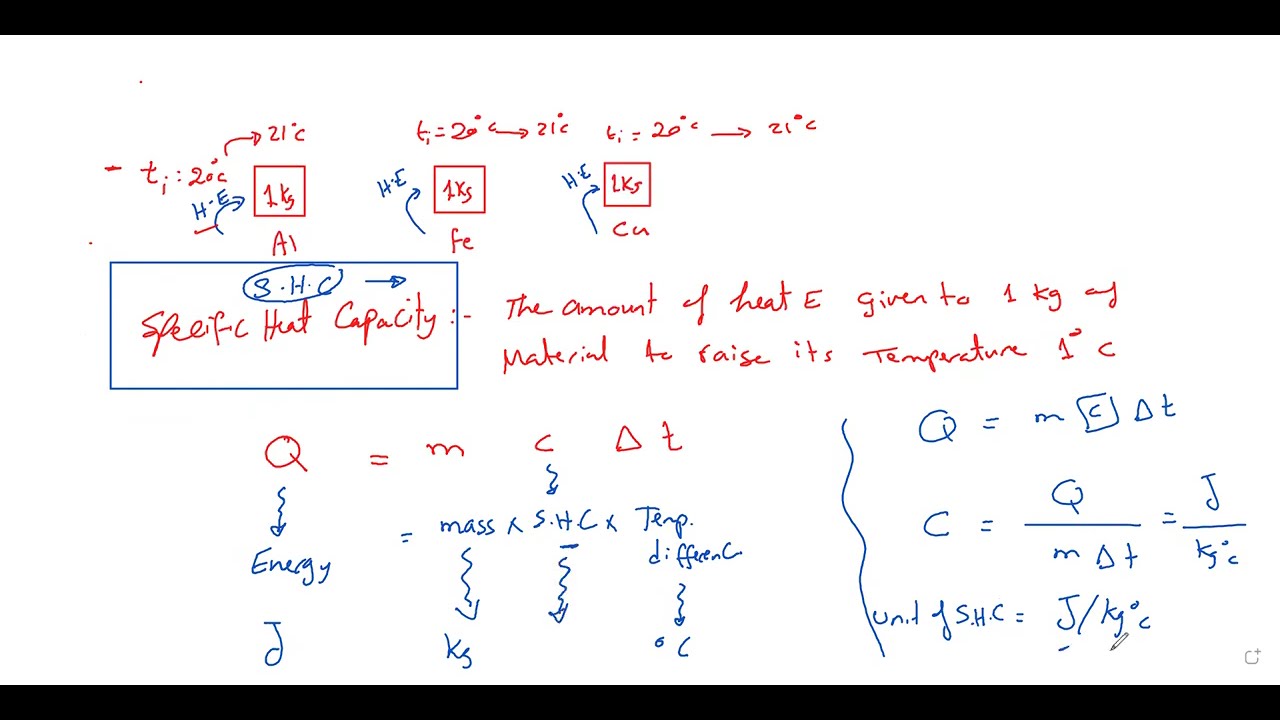 21°c
ti = 20°c → 21°c
ti = 20°c → 21°c
- ti : 20°c
H.E
1 kg
H.E
1 kg
H.E
1 kg
Al
Fe
Cu
S.H.C →
Specific Heat Capacity :-
The amount of heat E given to 1 kg of
Material to raise its Temperature 1°C
Q = m c Δt
= mass x S.H.C x Temp. differenc
Energy
J
kg
°C
Q = m C Δt
C = Q / m Δt = J / kg°c
unit of S.H.C = J/kg°c